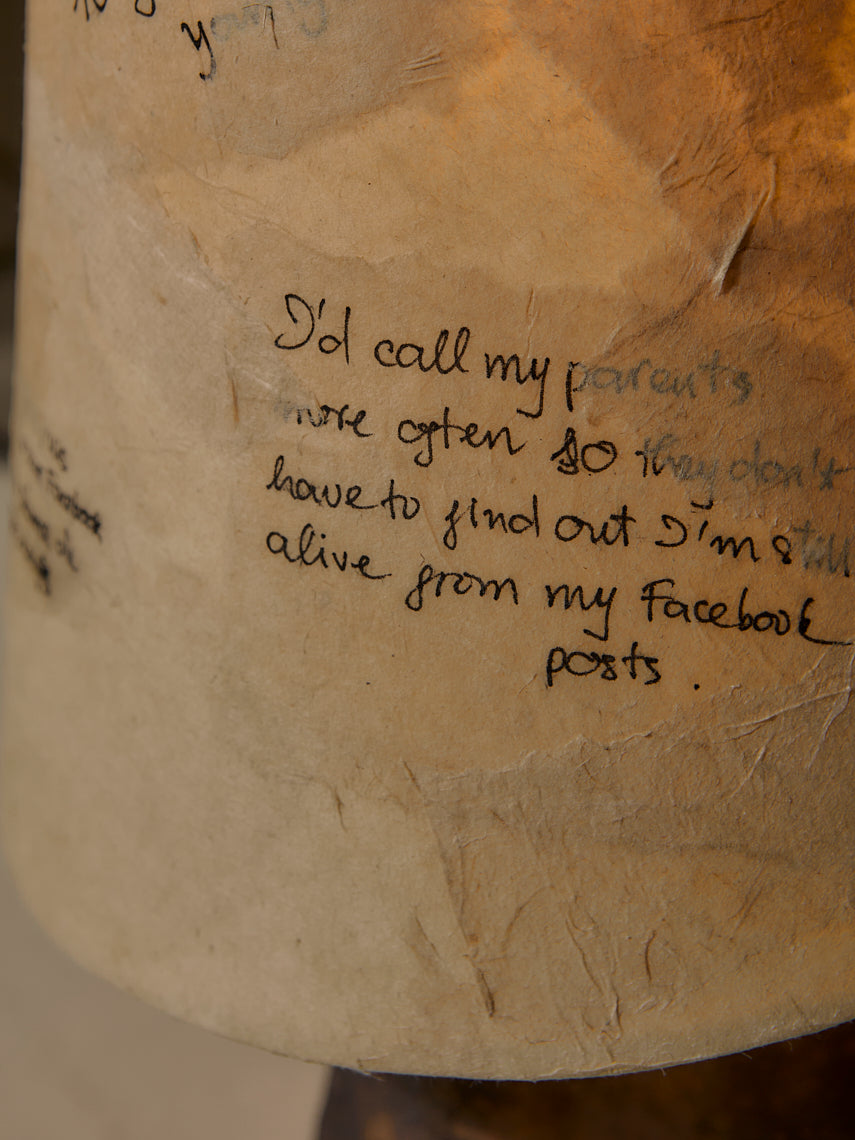 I'd call my parents
more often so they don't
have to find out I'm still
alive from my Facebook
posts.